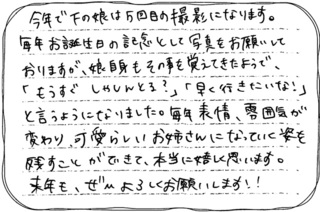 今年で下の娘は5回目の撮影になります。
毎年お誕生日の記念として写真をお願いして
おりますが、娘自身もその事を覚えてきたようで、
「もうすぐ しゃしんとる?」「早く行きたいな!」
と言うようになりました。毎年表情、雰囲気が
変わり、可愛らしいお姉さんになっていく姿を
残すことができて、本当に嬉しく思います。
来年も、ぜひよろしくお願いします!!